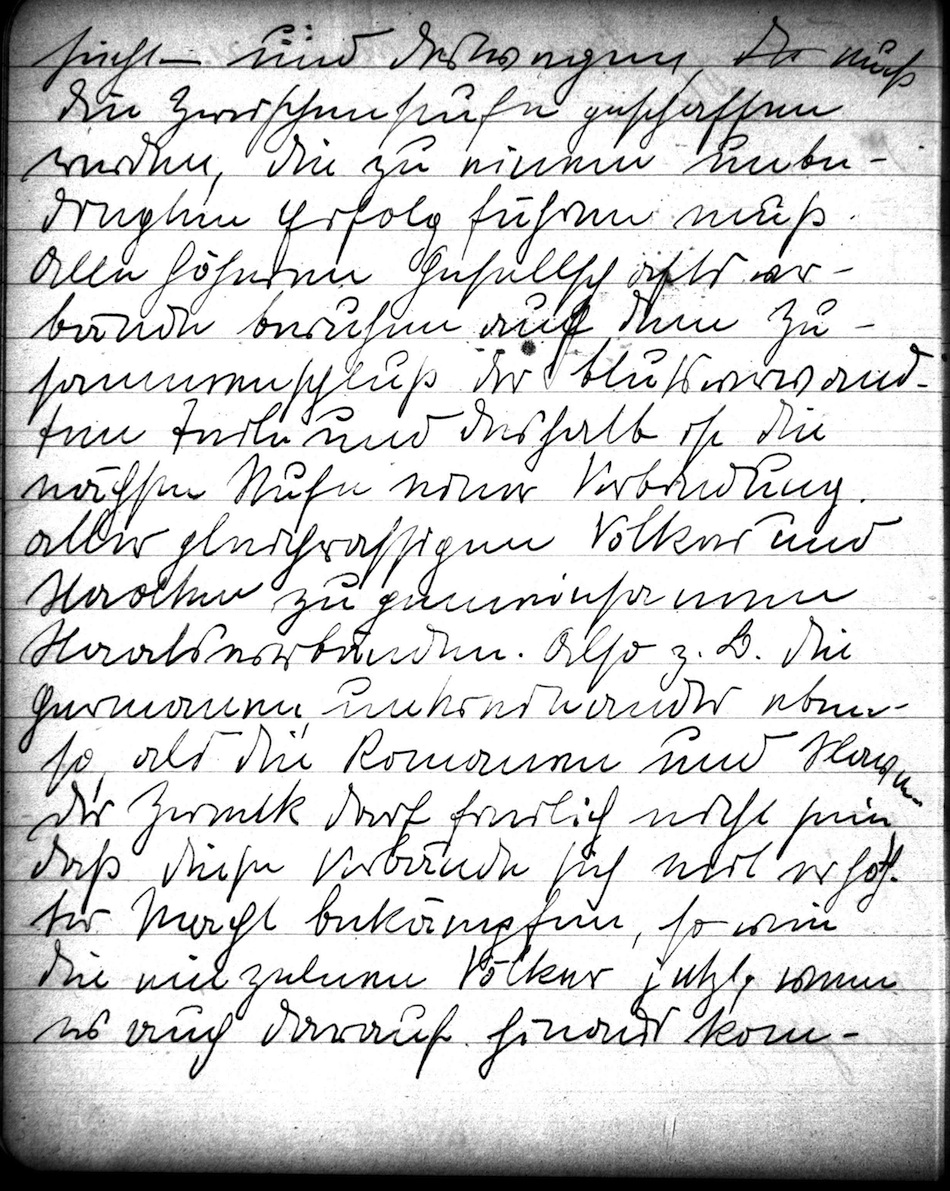 sucht – und deswegen, da muß
die Zwischenstufe geschaffen
werden, die zu einem unbe-
dingten Erfolg führen muß.
Alle höheren Gesellschaftsver-
bände beruhen auf dem Zu-
sammenschluß der blutsverwand-
ten Teile und deshalb ist die
nächste Stufe einer Verbindung
aller gleichrassigen Völker und
Staaten zu gemeinsamen
Staatsverbänden. Also z. B. die
Germanen untereinander eben-
so, als die Romanen und Slawen
der Zweck darf freilich nicht sein,
daß diese Verbände sich mit erhöh-
ter Macht bekämpfen, so wie
die einzelnen Völker jetzt, wenn
es auch darauf hinaus kom-